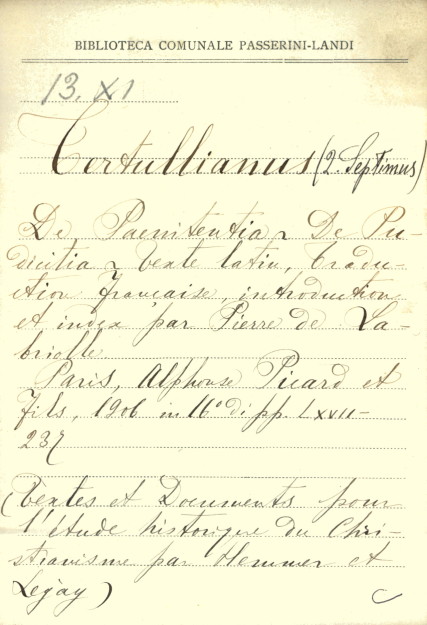 BIBLIOTECA COMUNALE PASSERINI-LANDI
13. XI
Tertullianus (2. Septimus)
De Paenitentia - De Pu-
dicitia - texte latin, tradu-
ction française, introduction
et index par Pierre de La-
briolle
Paris, Alphonse Picard et
fils, 1906 in 16° di pp. LXVII-
237
(Textes et Documents pour
l'étude historique du Chri-
stianisme par Hemmer et
Lejay)